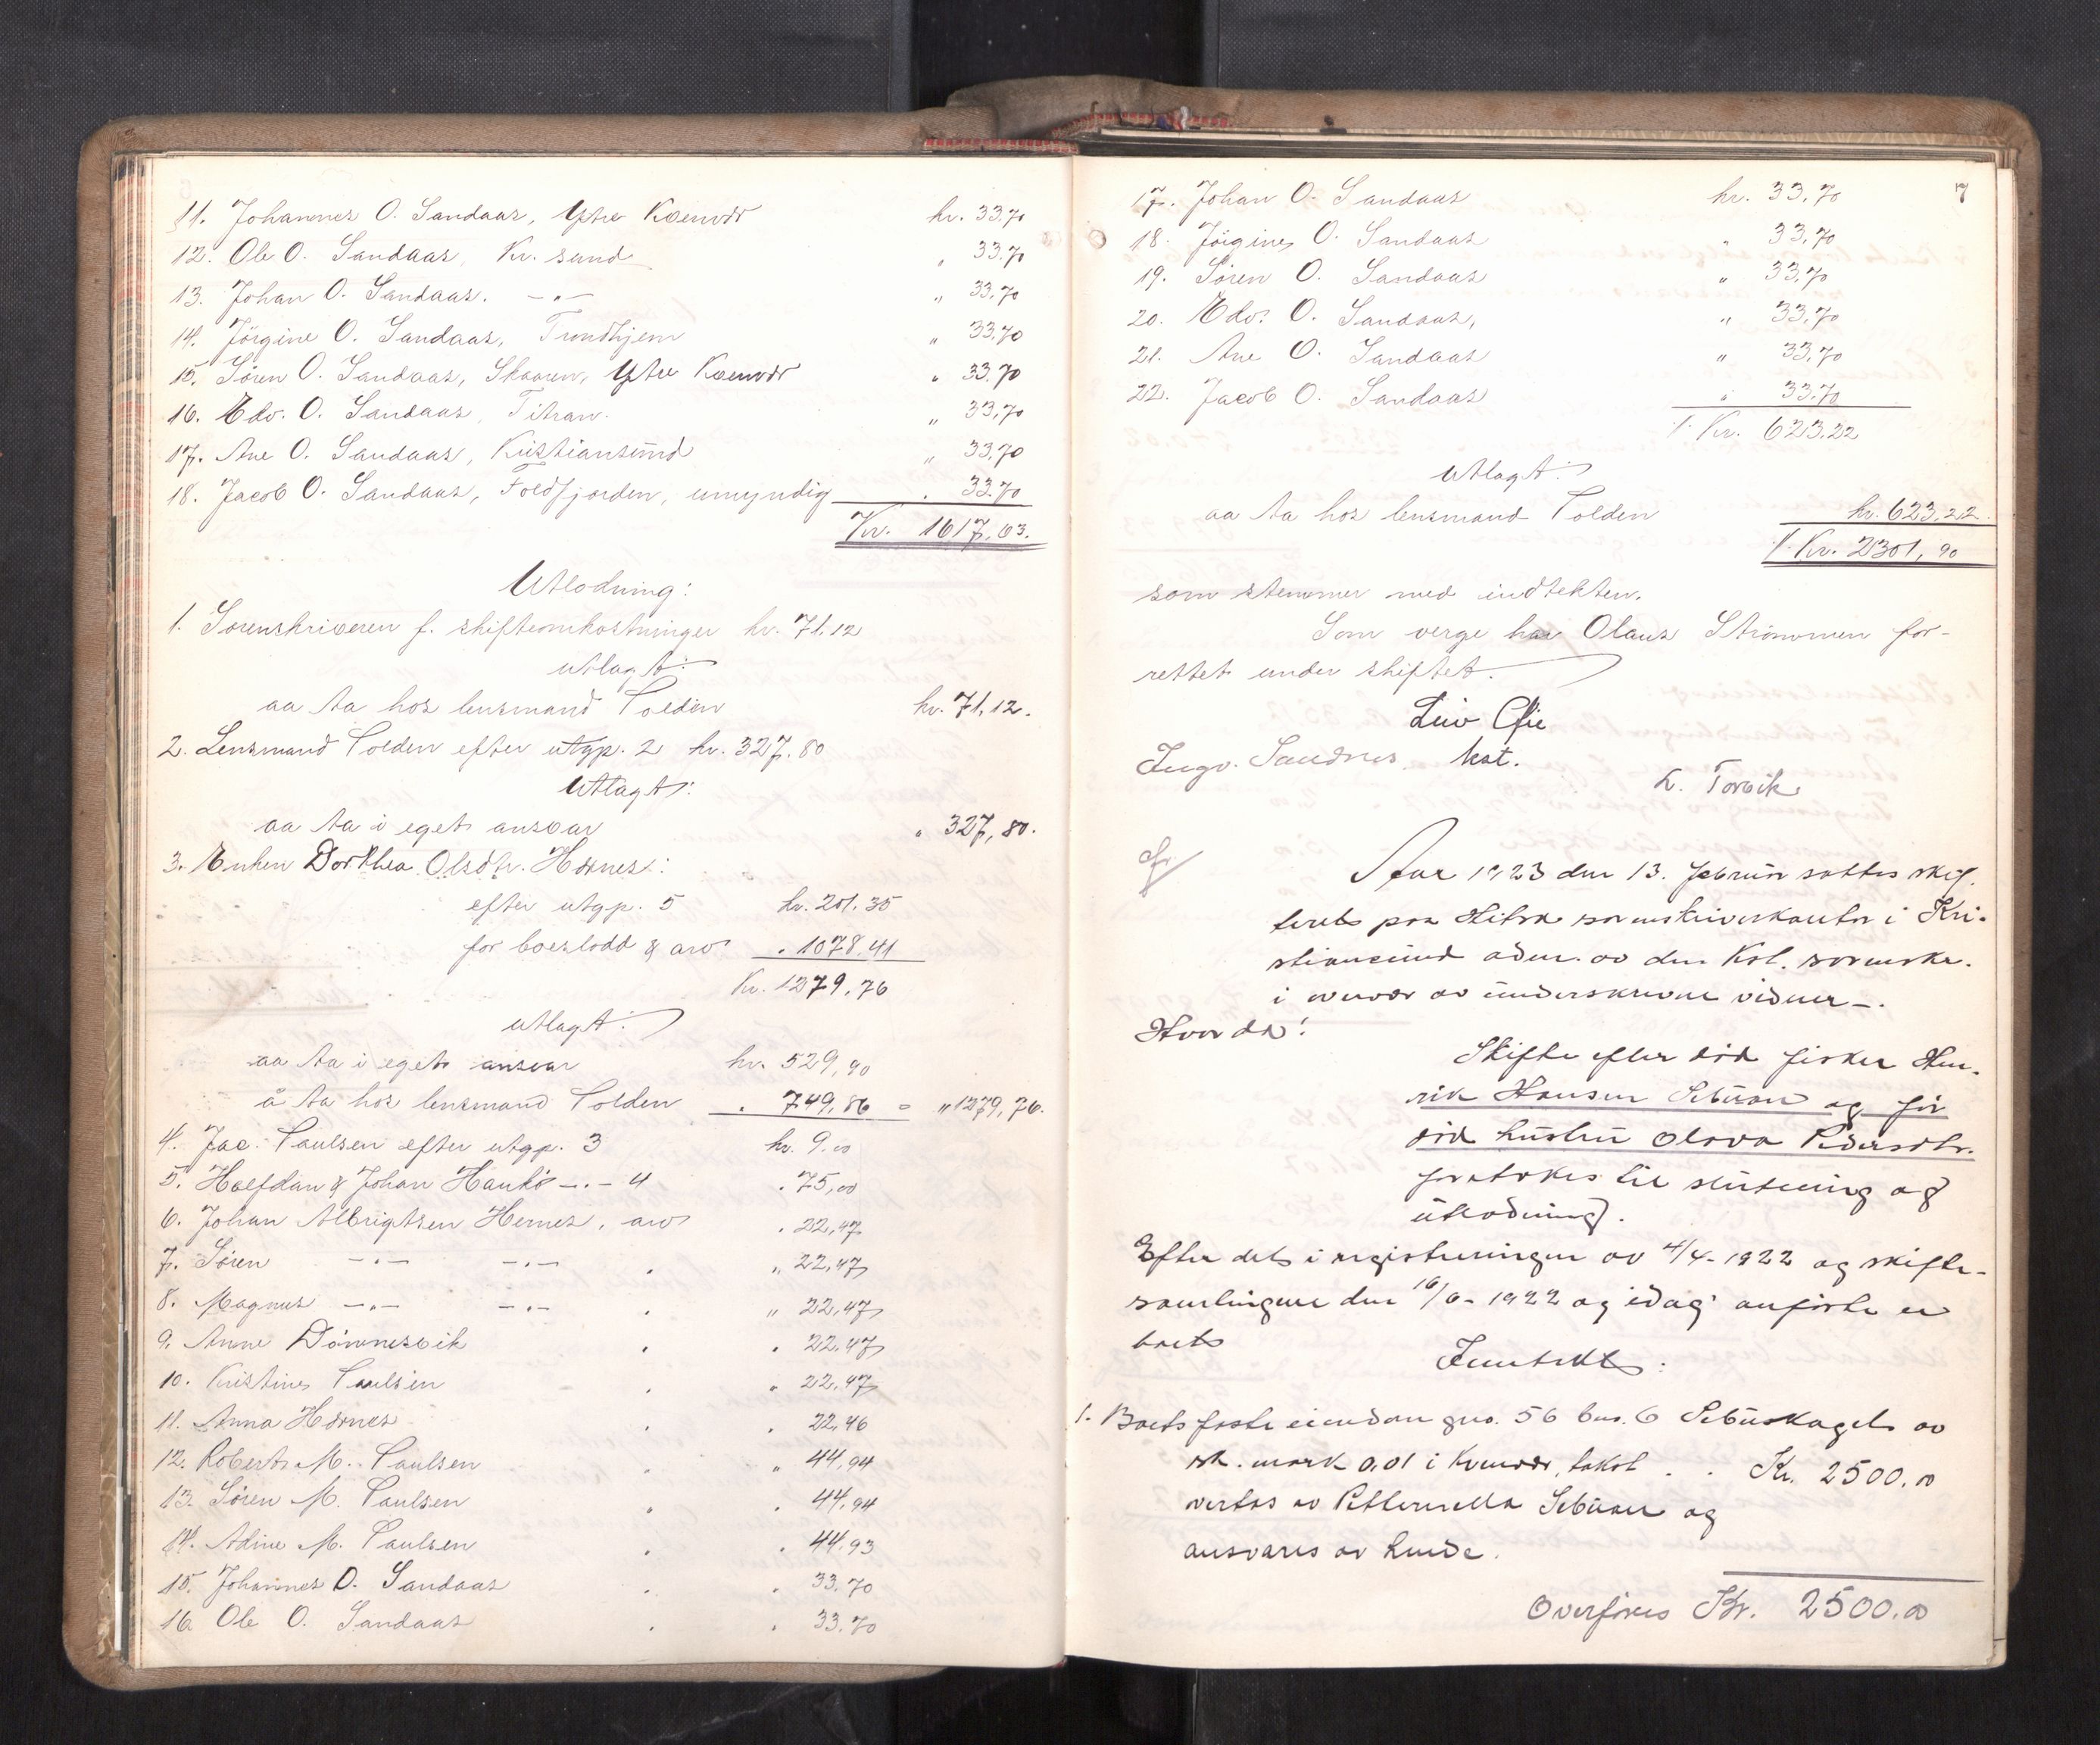 11. Johannes O. Sandaas, Ytre Kvenvær kr. 33.70
12. Ole O. Sandaas, Kr. sund " 33.70
13. Johan O. Sandaas. -"- " 33.70
14. Jörgine O. Sandaas, Trondhjem " 33.70
15. Sören O. Sandaas, Skaaren, Ytre Kvenvær " 33.70
16. Edv. O. Sandaas, Titran. " 33.70
17. Ane O. Sandaas, Kristiansund " 33.70
18. Jacob O. Sandaas, Foldfjorden, umyndig " 33.70
Kr. 1617,63.
Utlodning:
1. Sorenskriveren f. skifteomkostninger kr. 71.12
utlagt:
aa ta hos lensmand Polden kr. 71.12.
2. Lensmand Polden efter utgp. 2 kr. 327.80
Utlagt:
aa ta i eget ansvar " 327,80.
3. Enken Dorthea Olsdtr. Hernes:
efter utgp. 5 kr. 201.35
for boeslodd & arv " 1078.41
Kr. 1279.76
utlagt:
aa ta i eget ansvar kr. 529,90
å ta hos lensmand Polden " 749,86 = " 1279,76.
4. Jac. Paulsen efter utgp. 3 kr. 9.00
5. Halfdan & Johan Hankö -"- 4 " 75,00
6. Johan Albrigtsen Hernes, arv " 22,47
7. Sören -"- -"- " " 22,47
8. Magnus -"- -"- " " 22,47
9. Anne Dömnesvik " " 22.47
10. Kristine Paulsen " " 22,47
11. Anna Hernes " " 22.46
12. Robert M. Paulsen " " 44,94
13. Sören M. Paulsen " " 44,94
14. Adine M. Paulsen " " 44,93
15. Johannes O. Sandaas " " 33.70
16 Ole O. Sandaas " " 33.70
7
17. Johan O. Sandaas kr. 33.70
18. Jörgine O. Sandaas " 33.70
19. Sören O. Sandaas " 33,70
20. Edv. O. Sandaas, " 33,70
21. Ane O. Sandaas " 33,70
22. Jacob O. Sandaas " 33.70
Kr. 623.22
utlagt:
aa ta hos lensmand Polden kr. 623,22.
Kr. 2301,90
som stemmer med indtekten.
Som verge har Olaus Strömmen for-
rettet under skiftet.
Leiv
Ingv. Sandnes kst.
Torvik
Aar 1923 den 13. februar sattes skif-
teret paa Hitra sorenskriverkontor i Kri-
stiansund adm. av den Kst. sorenskr.
i overvær av underskrevne vidner -.
Hvorda:
Skifte efter död fisker Hen-
rik Hansen Sebuan og för
död hustru Olava Pedersdtr.
foretokes til slutning og
utlodning.
Efter det i registreringen av 4/4-1922 og skifte-
samlingene den 16/6-1922 og idag anförte er
boets
Inntekt:
1. Boets faste eiendom gno. 56 bno. 6 Sebuskaget av
sk. mark 0,01 i Kvenvær, takst . . Kr. 2500.00
overtas av Petternella Sebuan og
ansvares av hende.
Overföres Kr. 2500.00